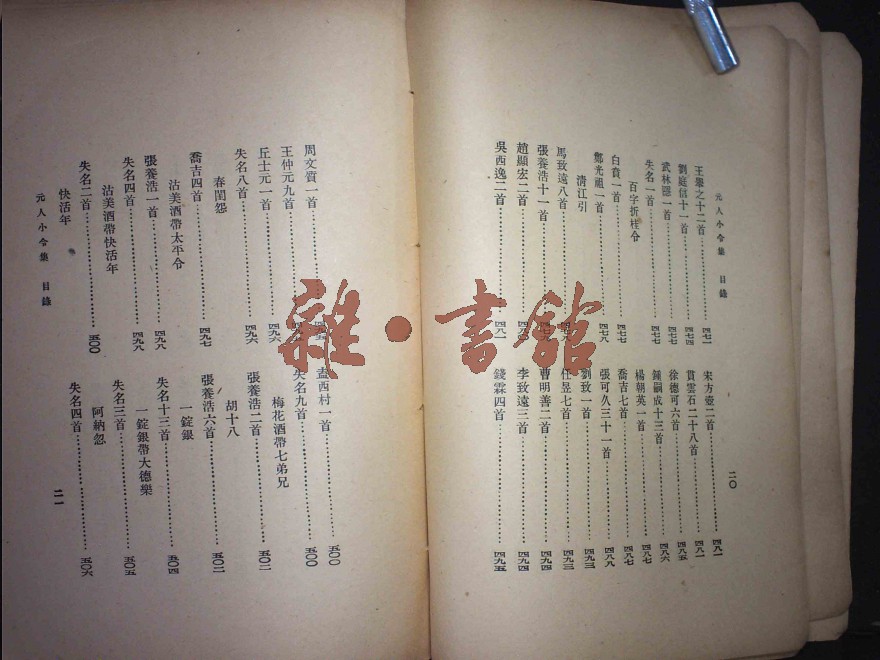 元人小令集 目錄
王舉之十二首……四七一
劉庭信十一首……四七四
武林隱一首……四七七
失名一首……四七七
百字折桂令
白賁一首……四七七
鄭光祖一首……四七八
清江引
馬致遠八首……四七八
張養浩十一首……四七九
趙顯宏二首……四八〇
吳西逸二首……四八一
宋方壺二首……四八一
貫雲石二十八首……四八一
徐德可六首……四八五
鍾嗣成十三首……四八六
楊朝英一首……四八七
喬吉七首……四八七
張可久三十一首……四八八
劉致一首……四九三
任昱七首……四九三
曹明善二首……四九四
李致遠三首……四九四
錢霖四首……四九五
二〇
周文質一首
王仲元九首
丘士元一首……四九六
失名八首……四九六
春閨怨
喬吉四首……四九七
沽美酒帶太平令
張養浩一首……四九八
失名四首……四九八
沽美酒帶快活年
失名二首……五〇〇
快活年
盍西村一首……五〇〇
失名九首……五〇〇
梅花酒帶七弟兄
張養浩二首……五〇二
胡十八
張養浩六首……五〇二
一錠銀
失名十三首……五〇四
一錠銀帶大德樂
失名三首……五〇五
阿納忽
失名四首……五〇六
元人小令集 目錄
二一
雜·書館